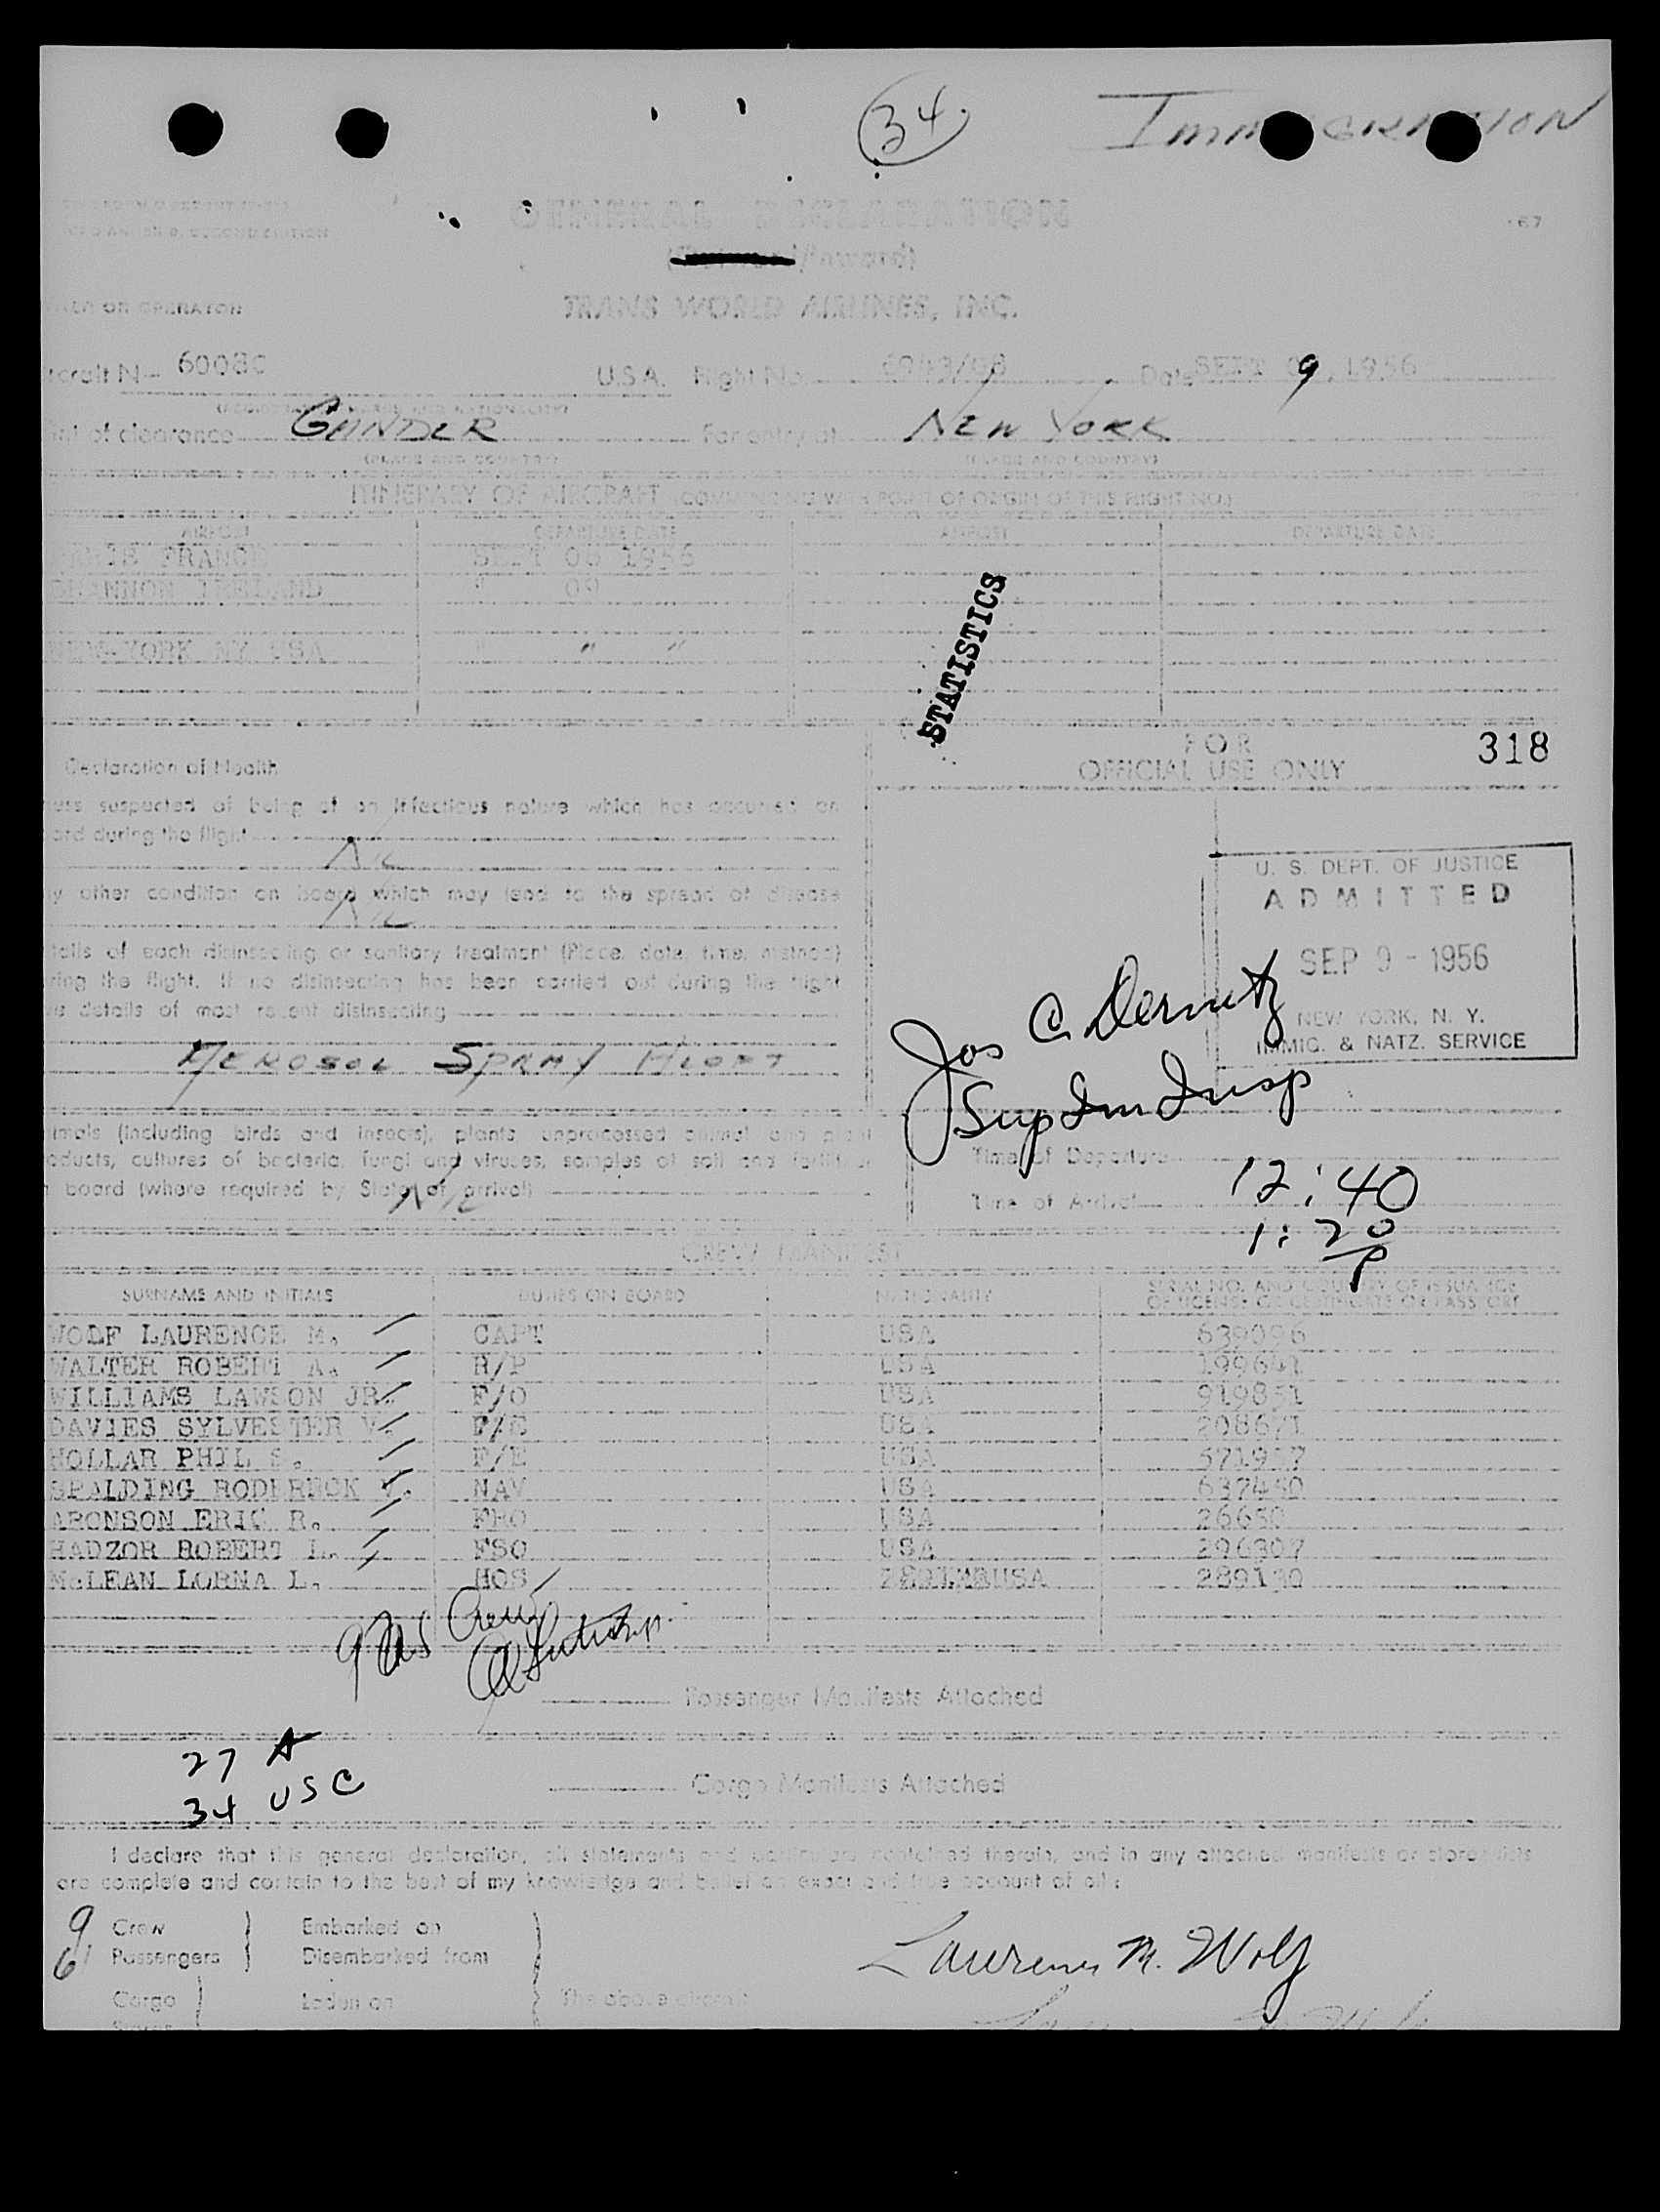 34.
IMMIGRATION
67
GENERAL DECLARATION
(Inward)
OR OPERATOR
TRANS WORLD AIRLINES, INC.
N— 6008C U.S.A. Flight No. Date SEPT 9, 1956
of clearance GANDER For entry at NEW YORK
(PLACE AND COUNTRY) (PLACE AND COUNTRY)
ITINERARY OF AIRCRAFT (COMMENCING WITH POINT OF ORIGIN OF THIS FLIGHT NO.)
AIRPORT DEPARTURE DATE AIRPORT DEPARTURE DATE
FRANCE SEPT 08 1956
SHANNON IRELAND " 09
NEW YORK NY USA " " "
STATISTICS
FOR
OFFICIAL USE ONLY
318
Declaration of Health
suspected of being of an infectious nature which has occurred on
during the flight
NIL
other condition on board which may lead to the spread of disease
NIL
of each disinsecting or sanitary treatment (Place, date, time, method)
the flight. If no disinsecting has been carried out during the flight
details of most recent disinsecting
AEROSOL SPRAY ALOFT
U. S. DEPT. OF JUSTICE
ADMITTED
SEP 9 - 1956
NEW YORK, N. Y.
IMMIG. & NATZ. SERVICE
Jos C.
Sup Im Insp
(including birds and insects), plants, unprocessed animal and plant
cultures of bacteria, fungi and viruses, samples of soil and
board (where required by State of arrival)
NIL
Time of Departure
Time of Arrival 12:40
1:20 P
CREW MANIFEST
SURNAME AND INITIALS DUTIES ON BOARD NATIONALITY SERIAL NO. AND COUNTRY OF ISSUANCE
OF LICENSE OR CERTIFICATE OR PASSPORT
WOLF LAURENCE M. CAPT USA 639096
WALTER ROBERT A. R/P USA 199641
WILLIAMS LAWSON JR. F/O USA 919851
DAVIES SYLVESTER V. F/E USA 208671
HOLLAR PHIL S. F/E USA
SPALDING RODERICK NAV USA
ARONSON ERIC R. FRO USA
HADZOR ROBERT L. FSO USA 296307
McLEAN LORNA L. HOS USA
9 Crew
Passenger Manifests Attached
27 A
34 USC
Cargo Manifests Attached
I declare that this general declaration, all statements and particulars contained therein, and in any attached manifests or stores lists
are complete and contain to the best of my knowledge and belief an exact and true account of all:
9 Crew } Embarked on }
61 Passengers } Disembarked from
Cargo } Laden on } The above aircraft
Laurence M. Wolf